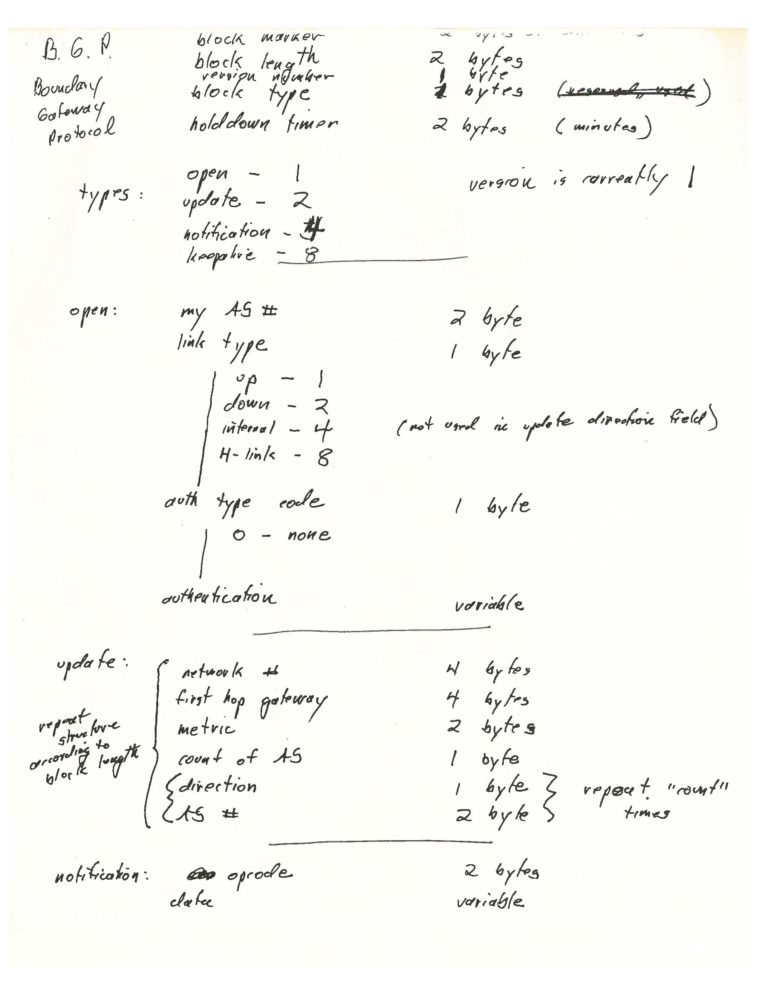 B. G. P. block marker 2 bytes
block length 2 bytes
version number 1 byte
Boundary block type bytes
Gateway
Protocol holddown timer 2 bytes (minutes)
types: open - 1 version is currently 1
update - 2
notification - 4
keepalive - 8
open: my AS # 2 byte
link type 1 byte
up - 1
down - 2
internal - 4 (not used in update direction field)
H-link - 8
auth type code 1 byte
0 - none
authentication variable
update: network # 4 bytes
first hop gateway 4 bytes
repeat structure according to block length
metric 2 bytes
count of AS 1 byte
direction 1 byte repeat "count" times
AS # 2 byte
notification: opcode 2 bytes
data variable